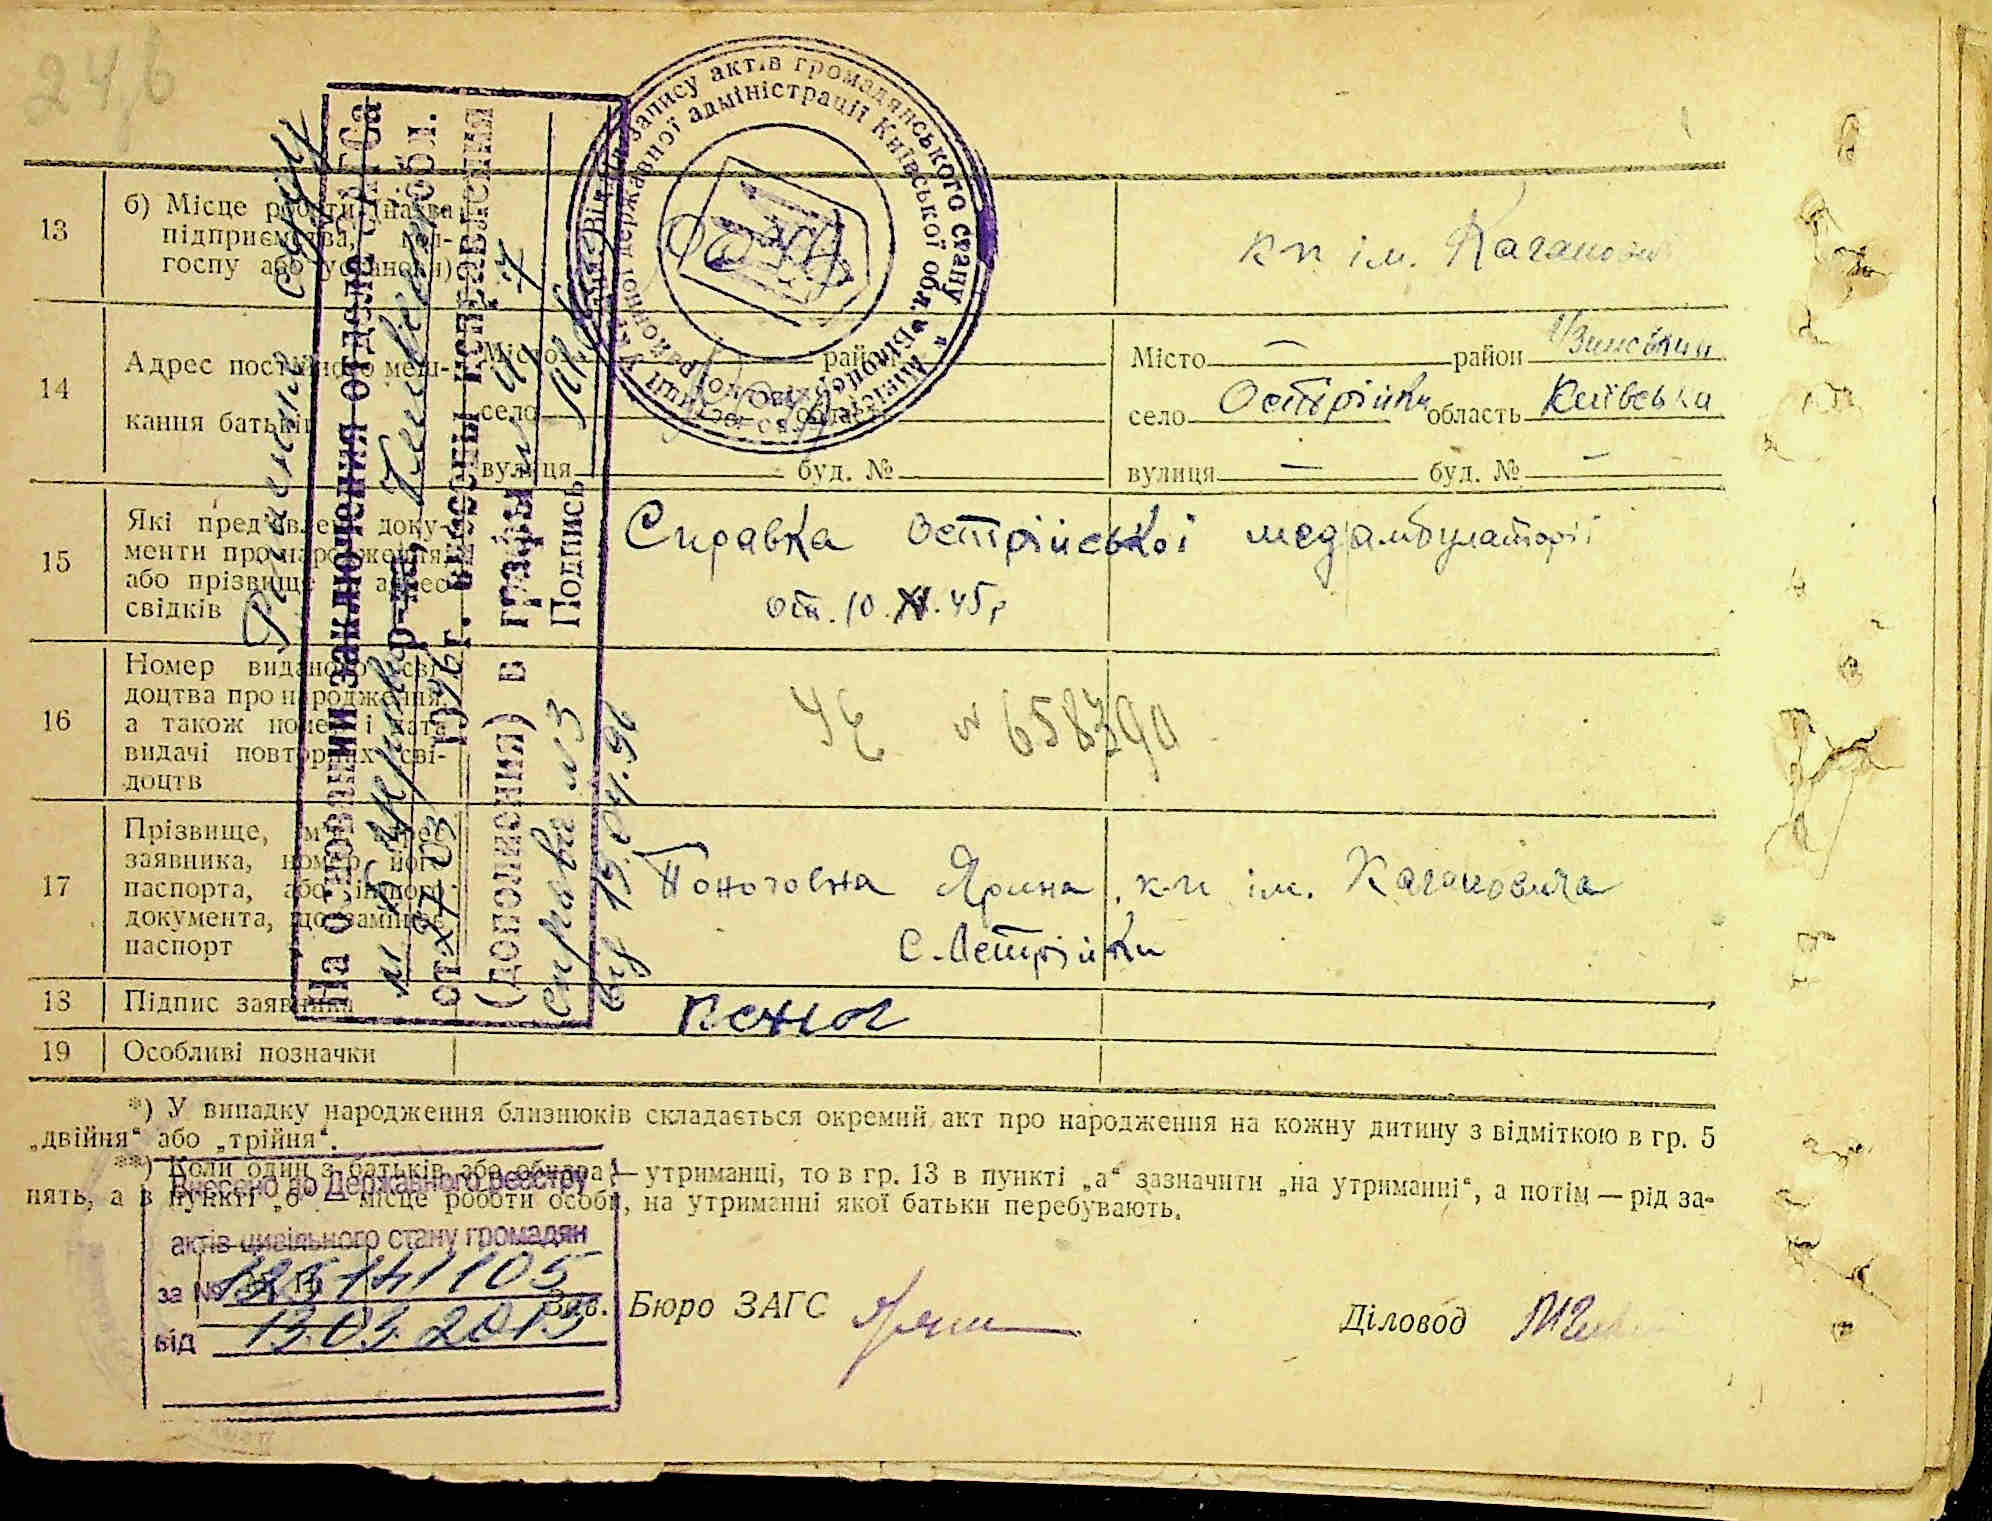 24,б
13
б) Місце роботи (назва
підприємства, кол-
госпу або установи)
к-п ім. Каганович
14
Адрес постійного меш-
кання батьків
Місто район
село область
вулиця буд. №
Місто — район Узинський
село Острійки область Київська
вулиця — буд. № —
15
Які пред'явлені доку-
менти про народження,
або прізвище і адрес
свідків
Справка Острійської медамбулаторії
от. 10.XI.45р
16
Номер виданого сві-
доцтва про народження,
а також номер і дата
видачі повторних сві-
доцтв
УЄ № 658390
17
Прізвище, ім'я, адрес
заявника, номер його
паспорта, або іншого
документа, що заміняє
паспорт
Ярина, к-п ім. Кагановича
С. Острійки
18
Підпис заявника
19
Особливі позначки
*) У випадку народження близнюків складається окремий акт про народження на кожну дитину з відміткою в гр. 5
„двійня“ або „трійня“.
**) Коли один з батьків або обидва — утриманці, то в гр. 13 в пункті „а“ зазначити „на утриманні“, а потім — рід за-
нять, а в пункті „б“ — місце роботи особи, на утриманні якої батьки перебувають.
Зав. Бюро ЗАГС
Діловод
На основании заключения отдела ЗАГСа
р-на, обл.
от 27 03 1996г. внесены исправления
(дополнения) в графы
Подпись
справка №3
від 19.04.96
Відділ запису актів громадянського стану
районної державної адміністрації Київської обл.
Внесено до Державного реєстру
актів цивільного стану громадян
за №
від 13.03.2015